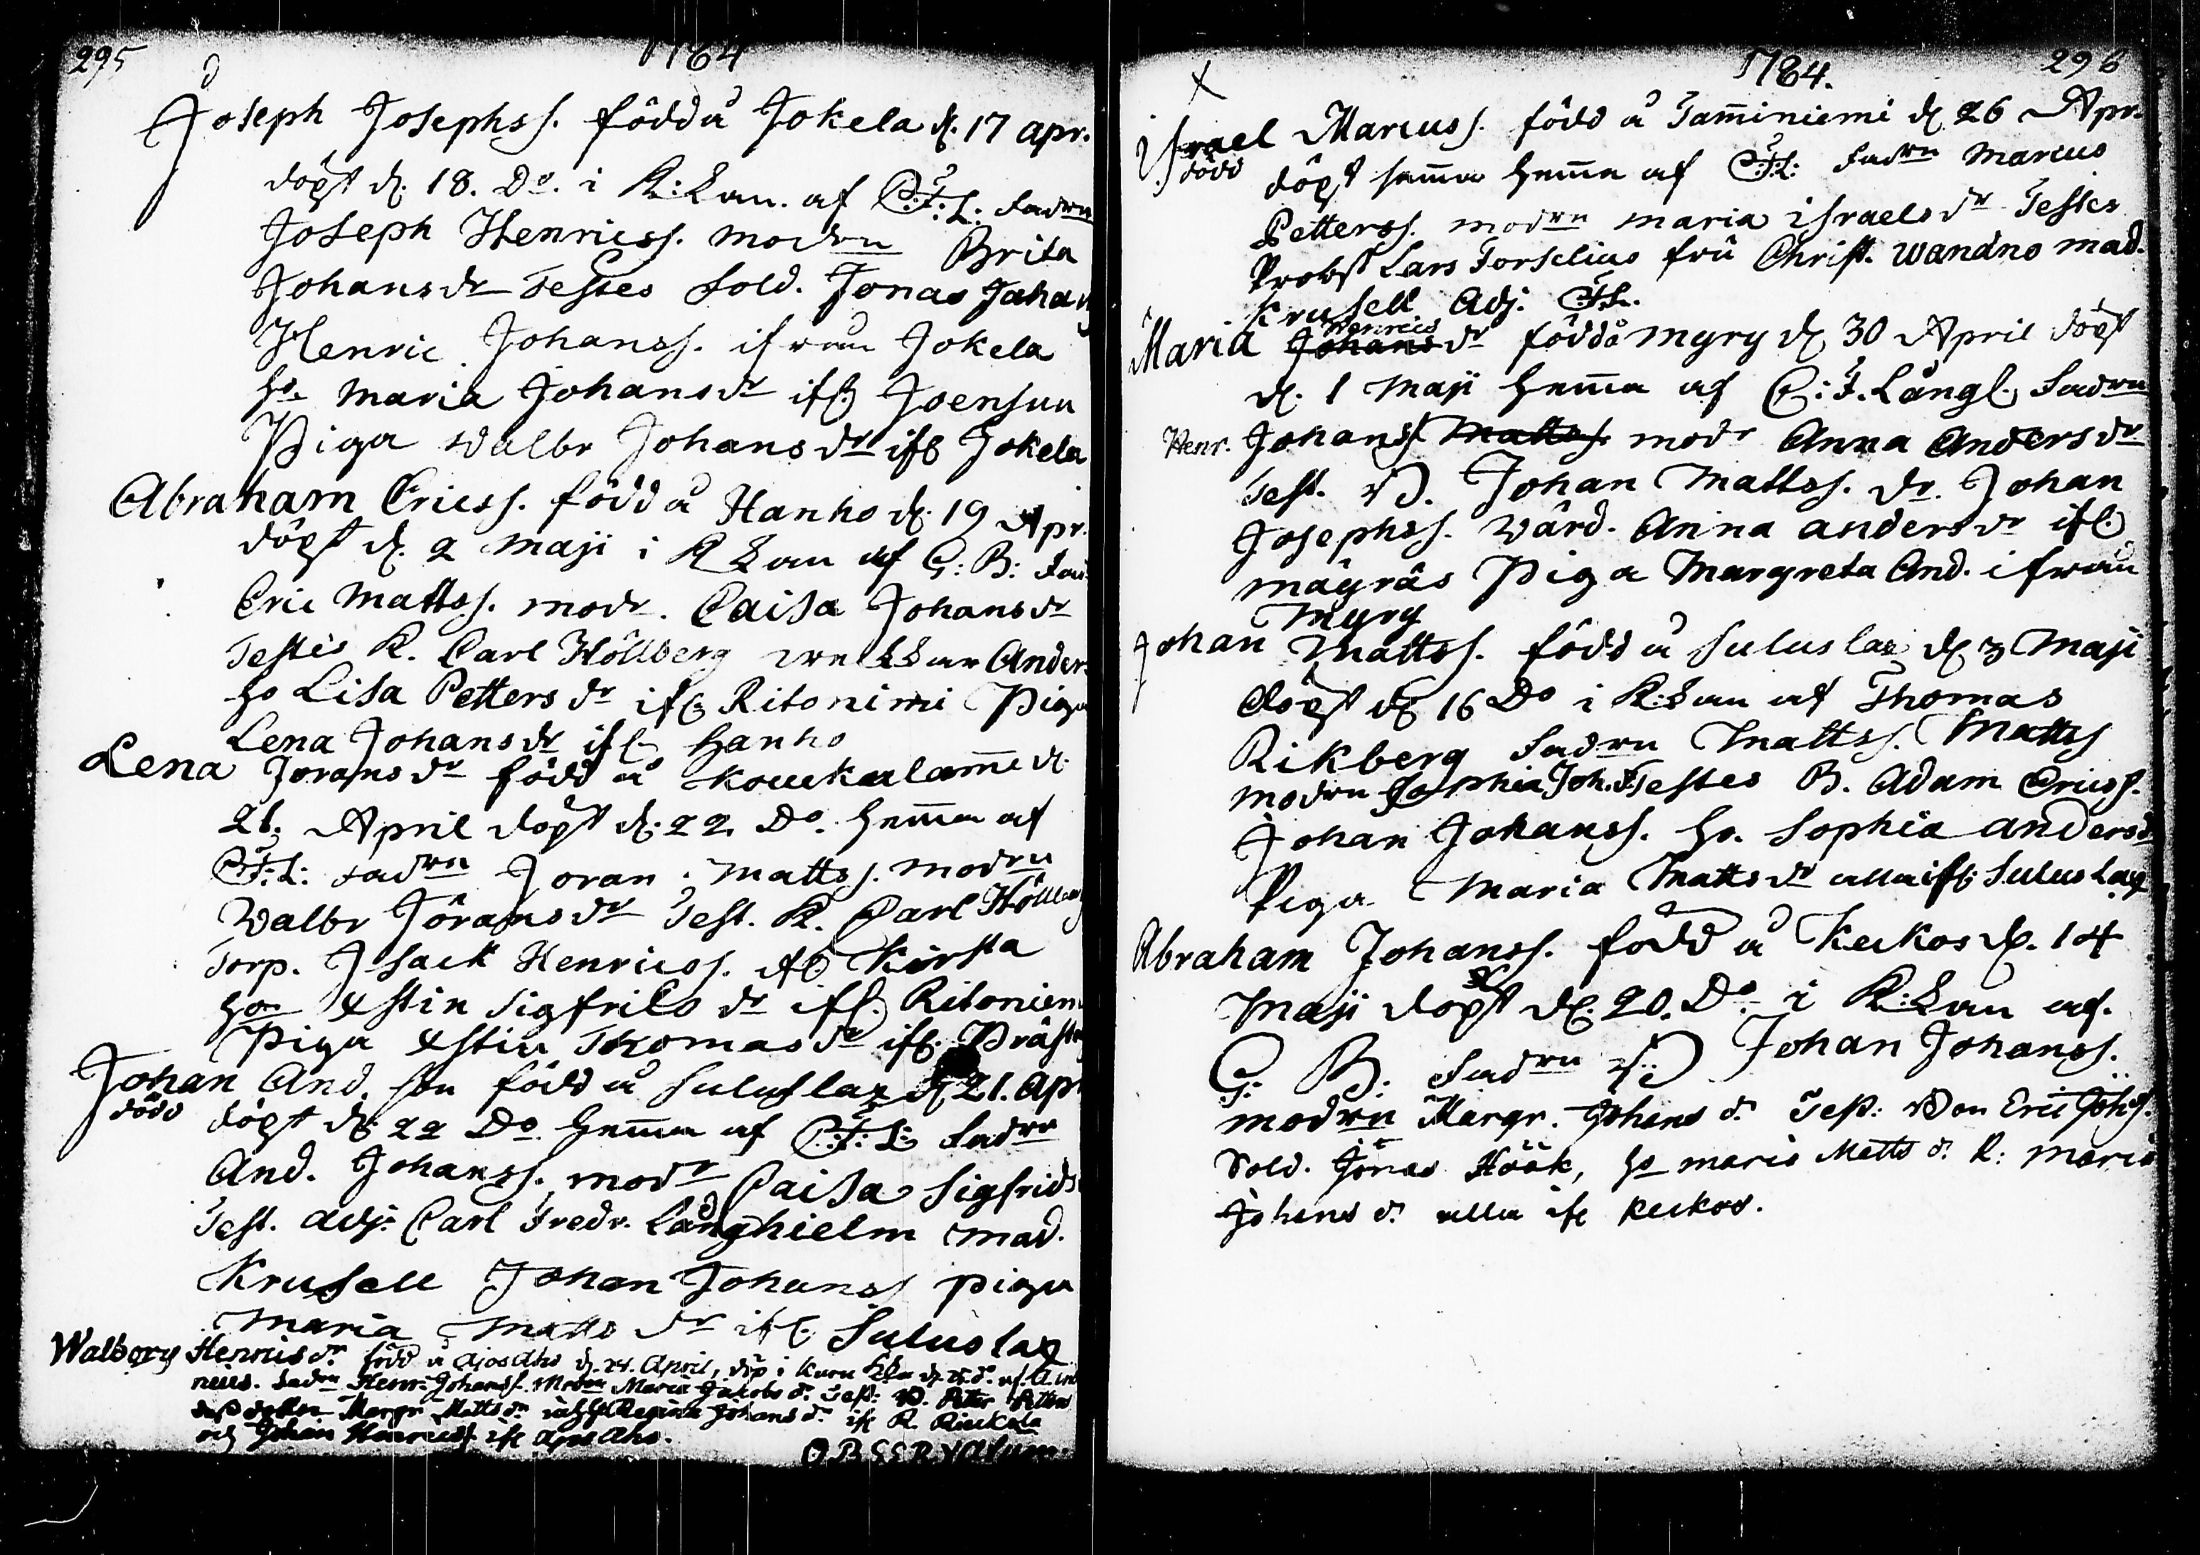 295
1784
Joseph Josephss. född å Jokela d. 17 apr.
döpt d. 18. Do. i K:Kan. af C:F:L: Fadrn
Joseph Henricss. modrn Brita
Johansdr Testes Sold. Jonas Jahan
Henric Johanss. ifrån Jokela
ho Maria Johansdr ifr Joensuu
Piga Walbr Johansdr ifr Jokela
Abraham Ericss. född å Hanho d. 19 Apr.
döpt d. 2 Maji i K Kan af G: B: Fad
Eric Mattss. modr. Caisa Johansdr
Testis K. Carl Höllberg Anders
ho Lisa Pettersdr ifr Ritonimi Piga
Lena Johansdr ifr Hanho
Lena Joransdr född å Kouckalamme d.
21. April döpt d. 22 Do. hemma af
C:F:L: Fadrn Joran Mattss. modrn
Walbr Jöransdr Test. K. Carl Höllberg
Torp. Isack Henricss. ifr Kirsta
hon Xstin Sigfridsdr ifr Ritoniem
Piga Xstin Thomasdr ifr Präst
Johan And. son född å Suluslax d. 21. Apr
död döpt d. 22 Do. hemma af C:F:L: Fadrn
And. Johanss. modr Caisa Sigfrids
Test. adj: Carl Fredr. Långhielm mad.
Krusell Johan Johanss piga
Maria Mattsdr ifr Suluslax
Walborg Henricsdr född å Ajos Aho d. 25. April, döp i Kuru
neus. Fadrn Henr: Johanss. Modrn Maria Jakobsdr. Test: B. Peter Petters
Margr Mattsdr Regina Johansdr ifr R. Rieckala
och Johan Henricss ifr Ajos Aho.
OBSERVatum.
1784.
296
X
Israel Marcuss. född å Tamminiemi d. 26 Apr.
död döpt samma hemma af C:F:L: Fadrn Marcus
Petterss. modrn Maria israelsdr Testes
Probst Lars Forselius fru Christ. Wandno mad.
Krusell Adj. CFL.
Henrics
Maria Johansdr född å Myry d. 30 April döpt
d. 1 Maji hemma af C:F. Långl. Fadrn
Henr. Johanss Mattss. modr Anna Andersdr
Test. B. Johan Mattss. dr. Johan
Josephss. Wärd. Anna andersdr ifr
mägräs Piga Margreta And. ifrån
Myry
Johan Mattss. född å Suluslax d. 3 Maji
döpt d. 16 Do i K:Kan af Thomas
Rikberg Fadrn Matts. Mattss
modrn Sophia Joh. dr Testes B. Adam Ericss.
Johan Johanss. ho. Sophia andersdr
Piga Maria Mattsdr alla ifr Suluslax
Abraham Johanss. född å Keckos d. 14
Maji döpt d. 20. Do i K:Kan af.
G: B: Fadrn B Johan Johanss.
modrn Margr. Johansdr. Test: Bon Eric Johs.
Sold. Jonas Höök, ho maria Mattsdr. P: maria
Johansdr. alla ifr Keckos.